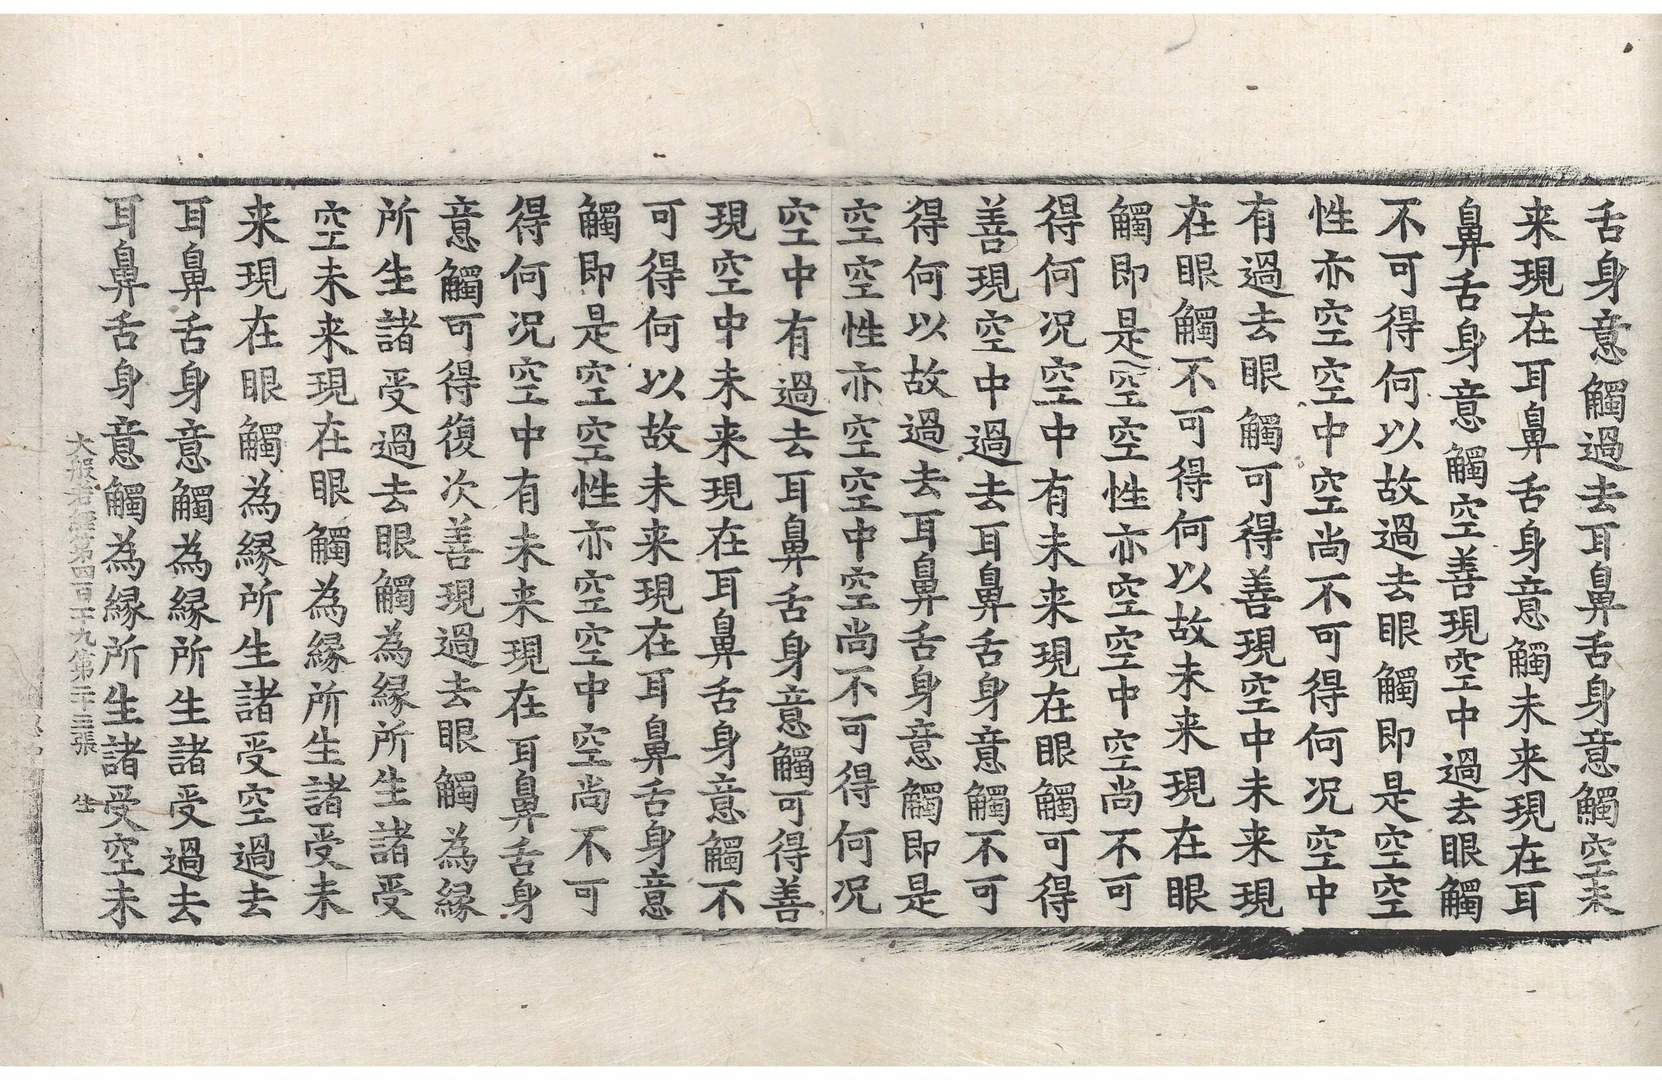 舌身意觸過去耳鼻舌身意觸空未
来現在耳鼻舌身意觸未来現在耳
鼻舌身意觸空善現空中過去眼觸
不可得何以故過去眼觸即是空空
性亦空空中空尚不可得何况空中
有過去眼觸可得善現空中未来現
在眼觸不可得何以故未来現在眼
觸即是空空性亦空空中空尚不可
得何况空中有未来現在眼觸可得
善現空中過去耳鼻舌身意觸不可
得何以故過去耳鼻舌身意觸即是
空空性亦空空中空尚不可得何况
空中有過去耳鼻舌身意觸可得善
現空中未来現在耳鼻舌身意觸不
可得何以故未来現在耳鼻舌身意
觸即是空空性亦空空中空尚不可
得何况空中有未来現在耳鼻舌身
意觸可得復次善現過去眼觸為縁
所生諸受過去眼觸為縁所生諸受
空未来現在眼觸為縁所生諸受未
来現在眼觸為縁所生諸受空過去
耳鼻舌身意觸為縁所生諸受過去
耳鼻舌身意觸為縁所生諸受空未
大般若經第四百一十九第二十三張